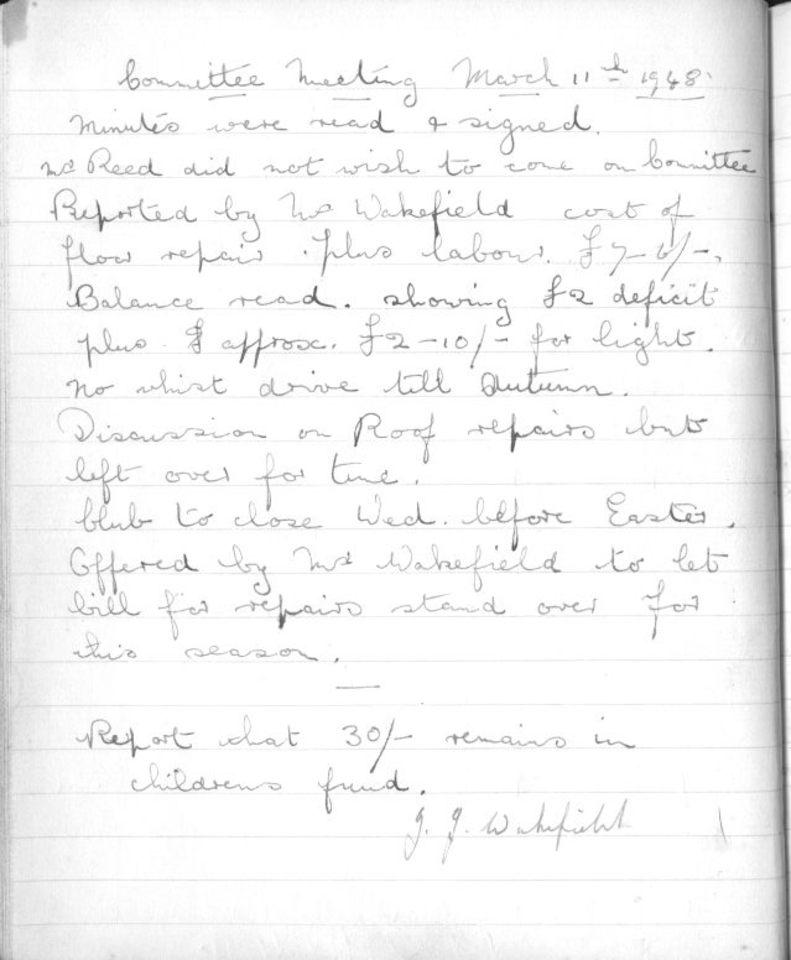 Committee Meeting March 11th 1948.
Minutes were read & signed.
Mr Reed did not wish to come on Committee
Reported by Mr Wakefield cost of
floor repair plus labour. £7-6/-.
Balance read. showing £2 deficit
plus £ approx. £2-10/- for light.
No whist drive till Autumn.
Discussion on Roof repairs but
left over for time.
Club to close Wed. before Easter.
Offered by Mr Wakefield to let
bill for repairs stand over for
this season.
Report that 30/- remains in
childrens fund.
J. J. Wakefield